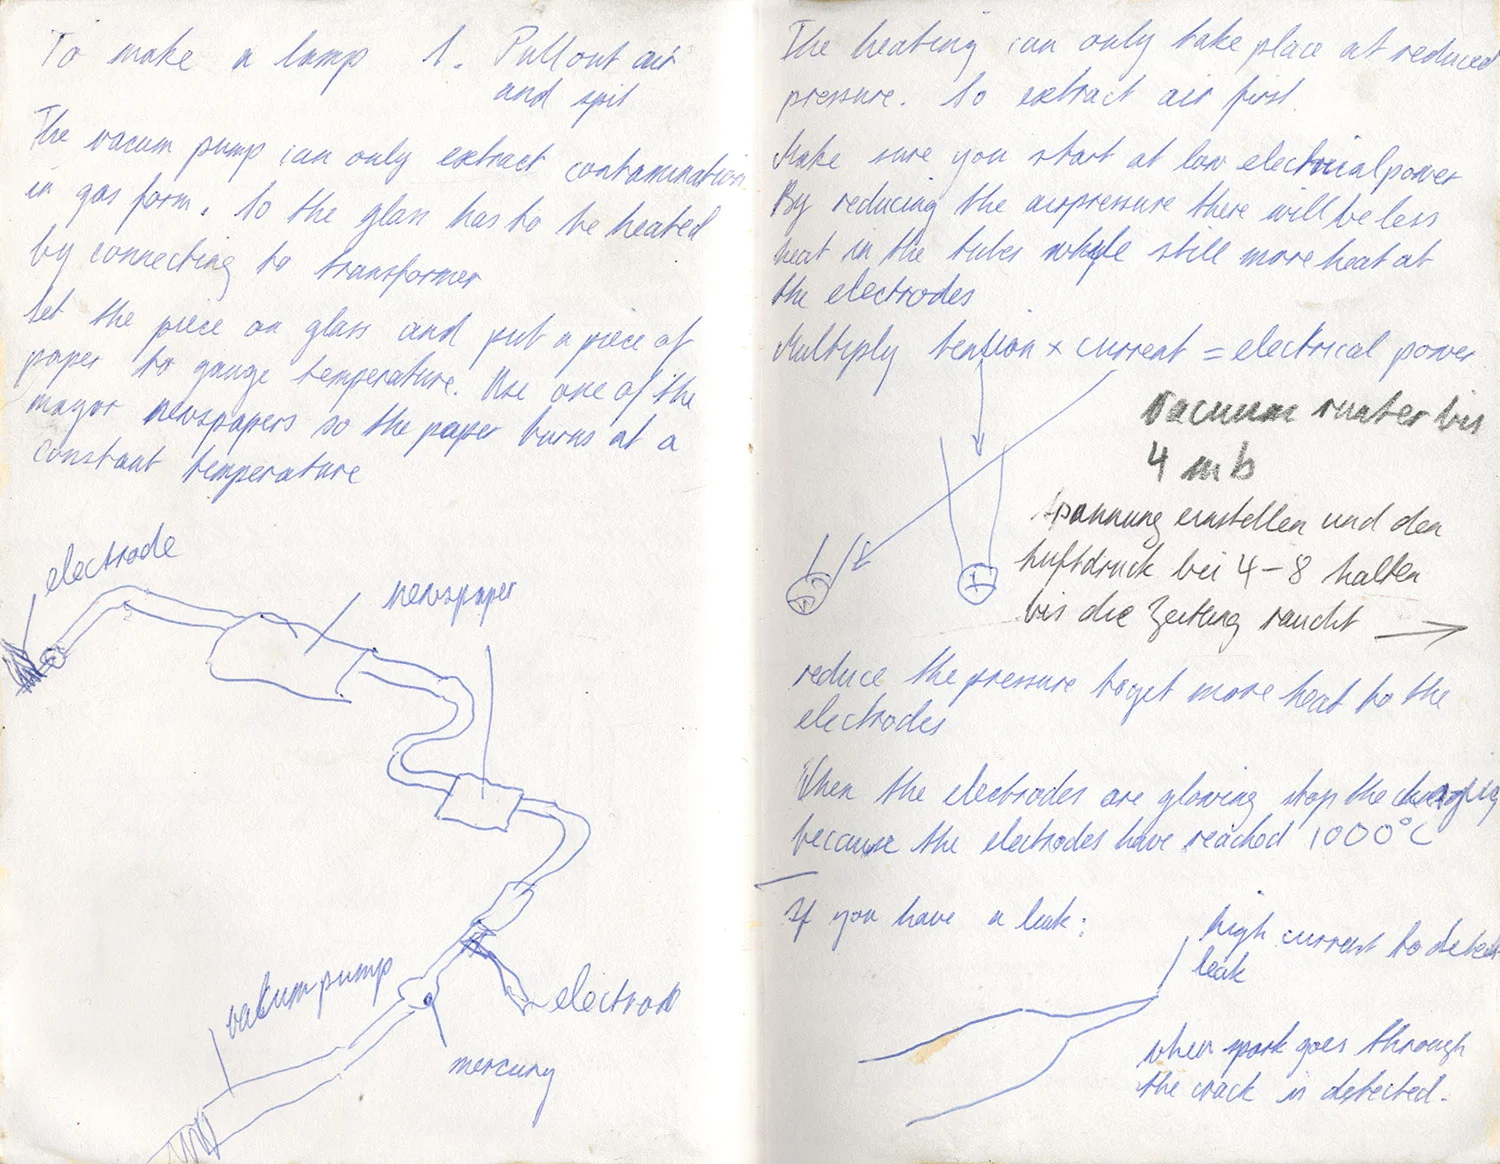 To make a lamp 1. Pull out air
and spit
The vacum pump can only extract contamination
in gas form. So the glass has to be heated
by connecting to transformer
Set the piece on glass and put a piece of
paper to gauge temperature. Use one of the
mayor newspapers so the paper burns at a
constant temperature
electrode
newspaper
vakumpump
electrod
mercury
The heating can only take place at reduced
pressure. So extract air first.
Make sure you start at low electrical power
By reducing the airpressure there will be less
heat in the tubes while still more heat at
the electrodes
Multiply tention x current = electrical power
Vacuum runter bis
4 mb
Spannung einstellen und den
Luftdruck bei 4-8 halten
bis die Zeitung raucht
reduce the pressure to get more heat to the
electrodes
When the electrodes are glowing stop the
because the electrodes have reached 1000°C
If you have a leak:
high current to detect
leak
when spark goes through
the crack is detected.